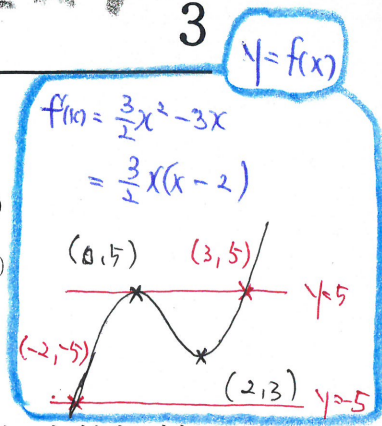 3
y=f(x)
f'(x) = 3/2 x² - 3x
= 3/2 x(x - 2)
(0,5) (3,5)
y=5
(-2,-5)
(2,3) y=-5